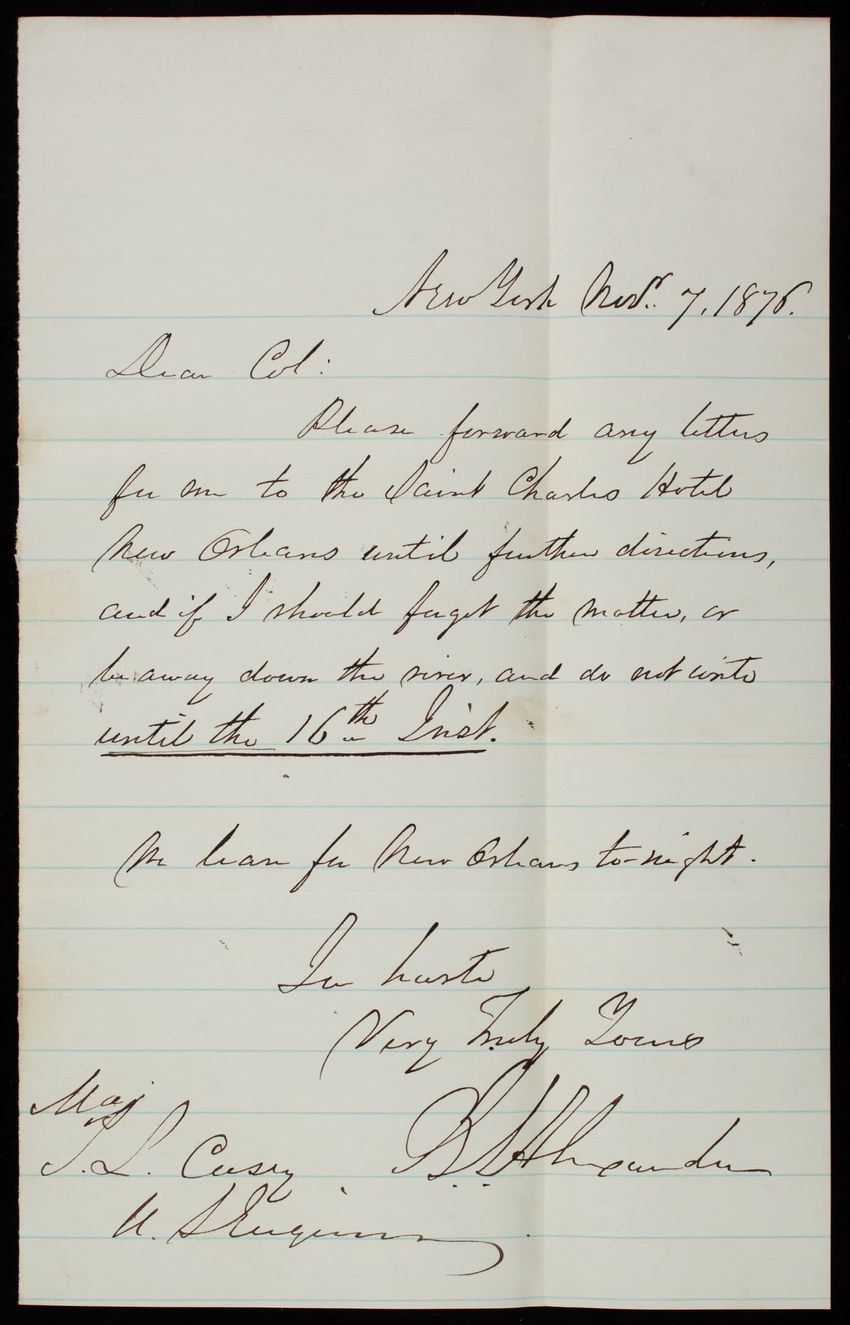 New York Novr. 7, 1876.
Dear Col:
Please forward any letters
for me to the Saint Charles Hotel
New Orleans until further directions,
and if I should forget the matter, or
be away down the river, and do not write
until the 16th Inst.
We leave for New Orleans to-night.
In haste
Very Truly Yours
B. S. Alexander
Maj
T. L. Casey
U. S Engineers